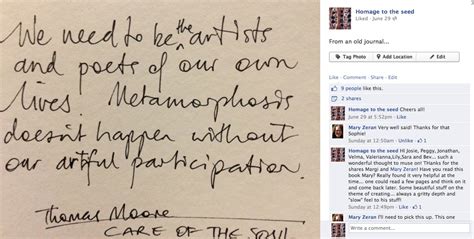 We need to be the artists
and poets of our own
lives. Metamorphosis
doesn't happen without
our artful participation.
Thomas Moore
CARE OF THE SOUL
Homage to the seed
Liked · June 29
From an old journal...
Tag Photo Add Location Edit
Like · Comment · Share · Edit
9 people like this.
2 shares
Homage to the seed Cheers all!
June 29 at 5:52pm · Like
Mary Zeran Very well said! Thanks for that
Sophie!
Sunday at 12:50am · Like
Homage to the seed Hi Josie, Peggy, Jonathan,
Velma, Valerianna,Lily,Sara and Bev... such a
wonderful thought to muse on! Thanks for the
shares Margi and Mary Zeran! Have you read this
book Mary? Really found it very helpful at the
time... one could read a few pages and think on it
and come back later. Some beautiful stuff on the
theme of creating... always a gritty depth and
"slow" feel to his stuff!
Sunday at 12:49pm · Edited · Like · 1
Mary Zeran I'll need to pick this up. This one
Write a comment...